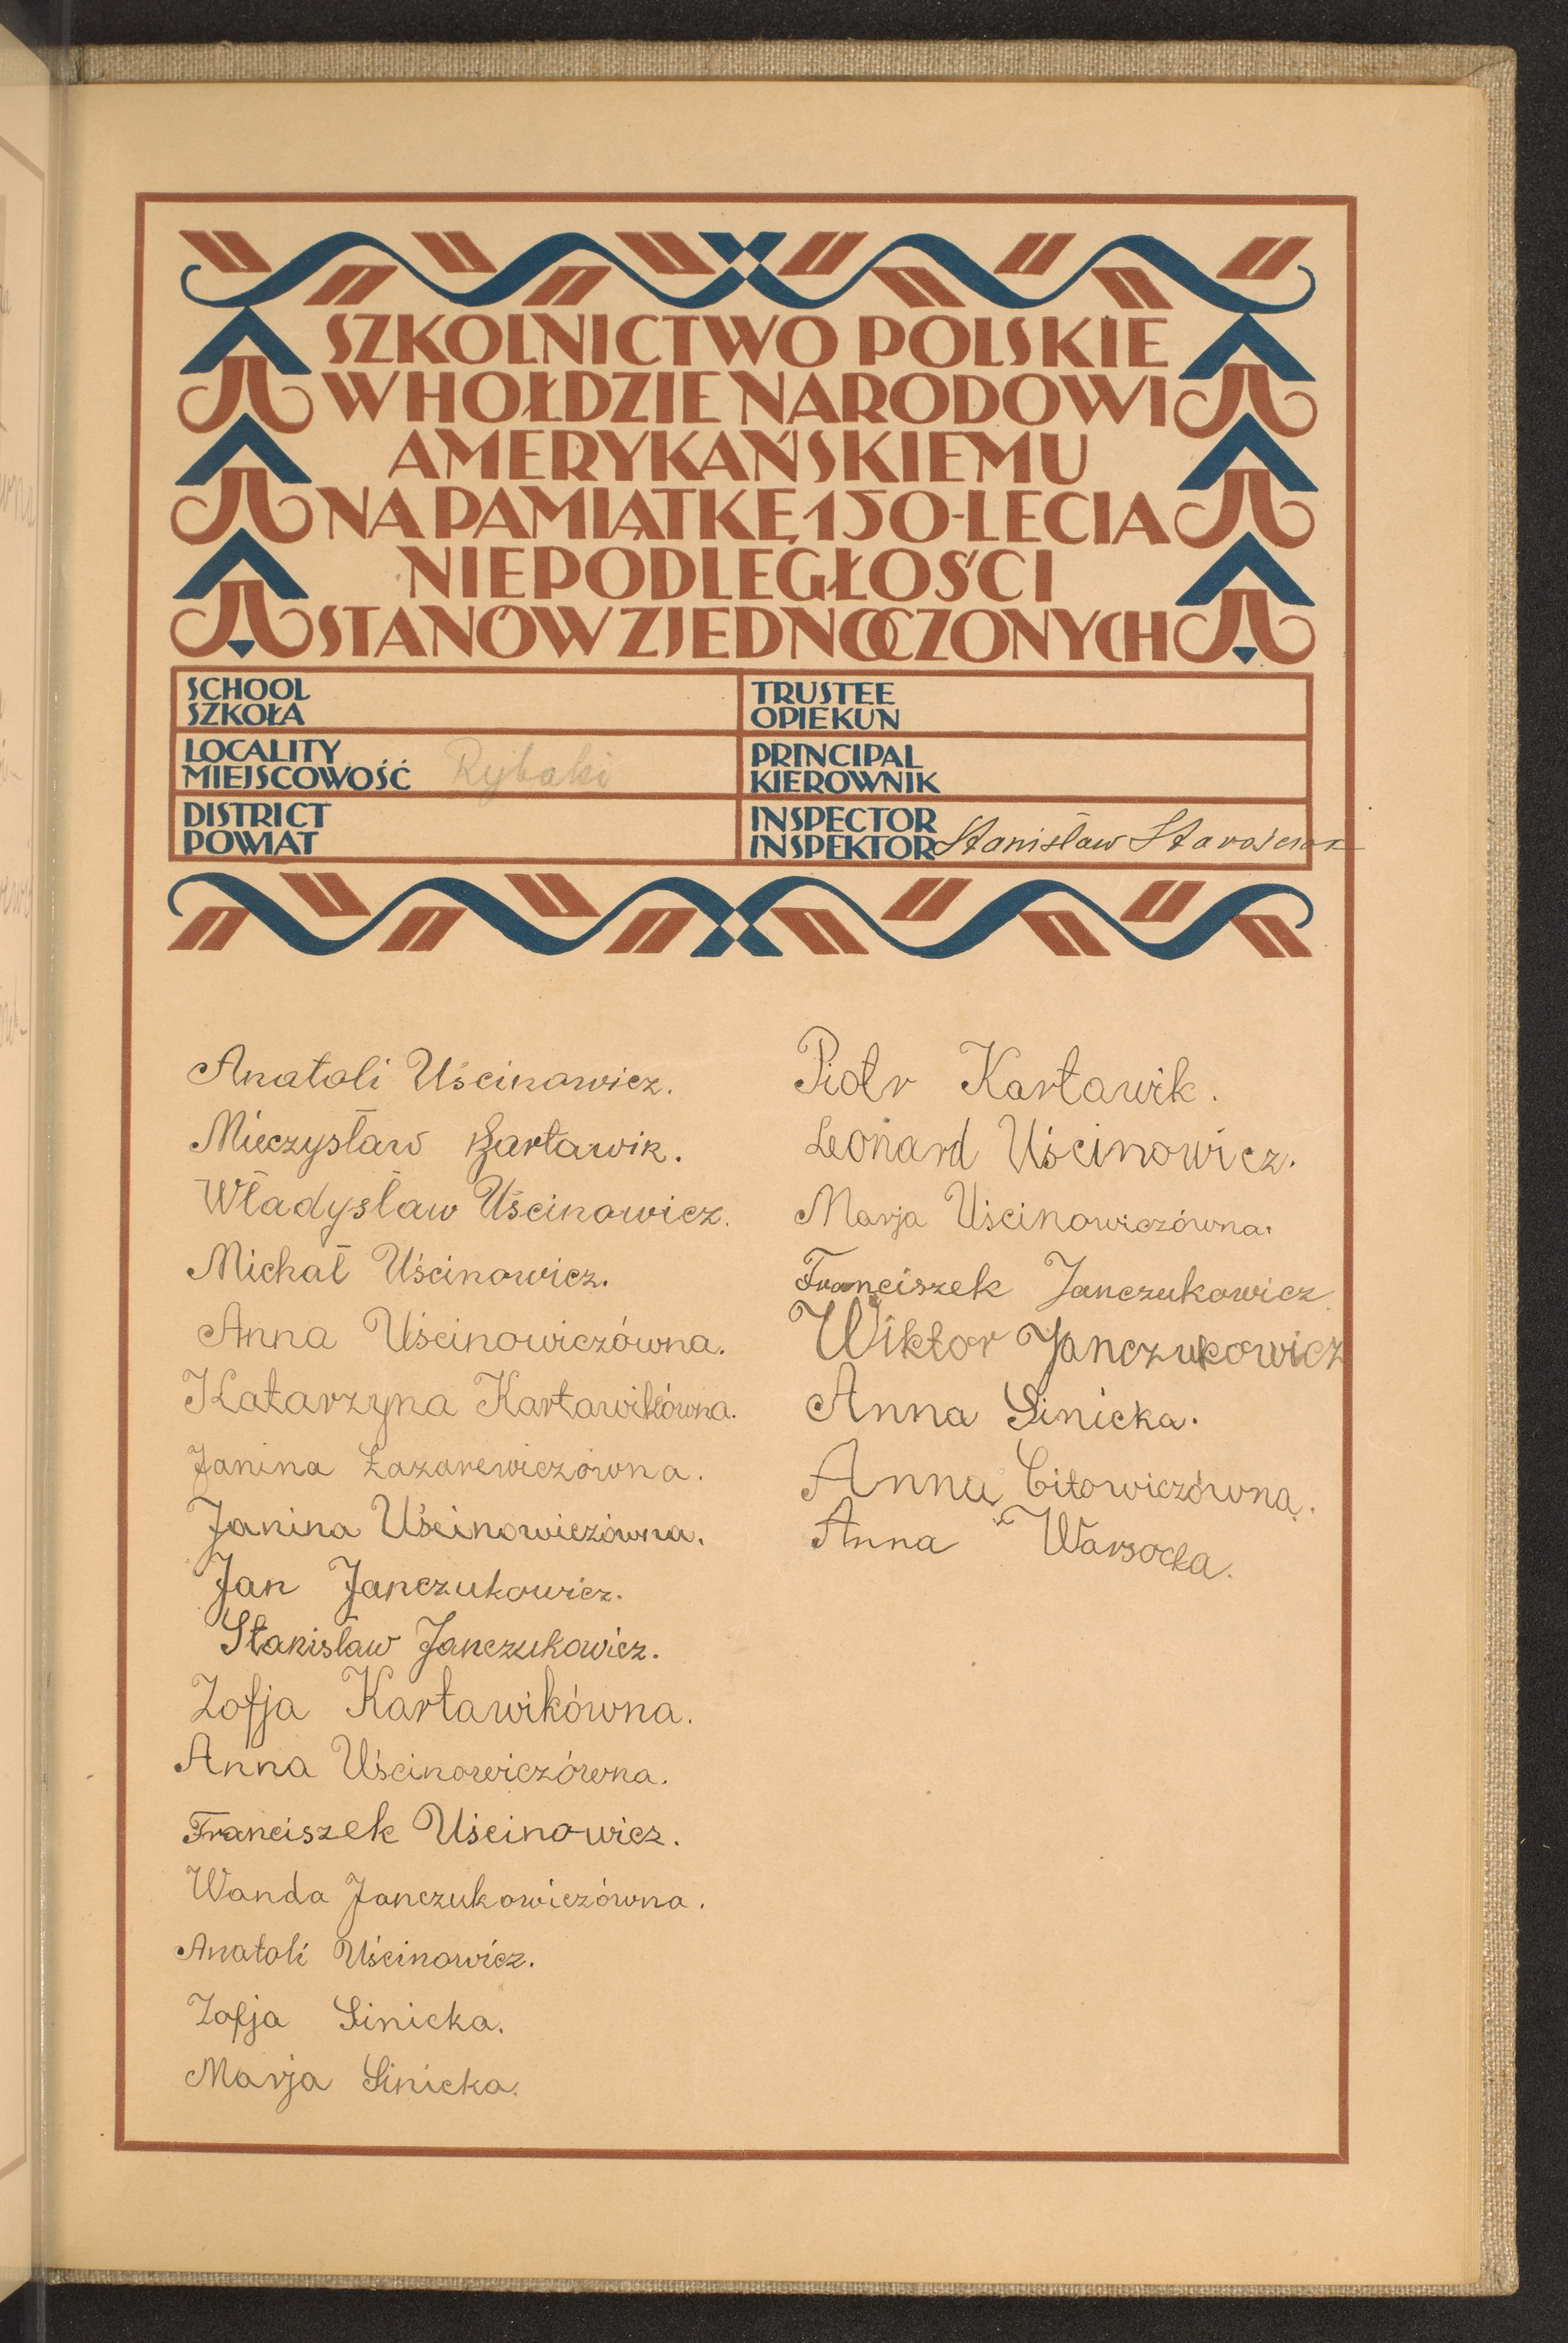 SZKOLNICTWO POLSKIE
W HOŁDZIE NARODOWI
AMERYKAŃSKIEMU
NA PAMIĄTKĘ 150-LECIA
NIEPODLEGŁOŚCI
STANÓW ZJEDNOCZONYCH
SCHOOL
SZKOŁA
TRUSTEE
OPIEKUN
LOCALITY
MIEJSCOWOŚĆ Rybaki
PRINCIPAL
KIEROWNIK
DISTRICT
POWIAT
INSPECTOR
INSPEKTOR Stanisław
Anatoli Uścinowicz.
Mieczysław Kartawik.
Władysław Uścinowicz.
Michał Uścinowicz.
Anna Uścinowiczówna.
Katarzyna Kartawikówna.
Janina Łazarewiczówna.
Janina Uścinowiczówna.
Jan Janczukowicz.
Stanisław Janczukowicz.
Zofja Kartawikówna.
Anna Uścinowiczówna.
Franciszek Uścinowicz.
Wanda Janczukowiczówna.
Anatoli Uścinowicz.
Zofja Sinicka.
Marja Sinicka.
Piotr Kartawik.
Leonard Uścinowicz.
Marja Uścinowiczówna.
Franciszek Janczukowicz
Wiktor Janczukowicz
Anna Sinicka.
Anna Citowiczówna.
Anna Warsocka.